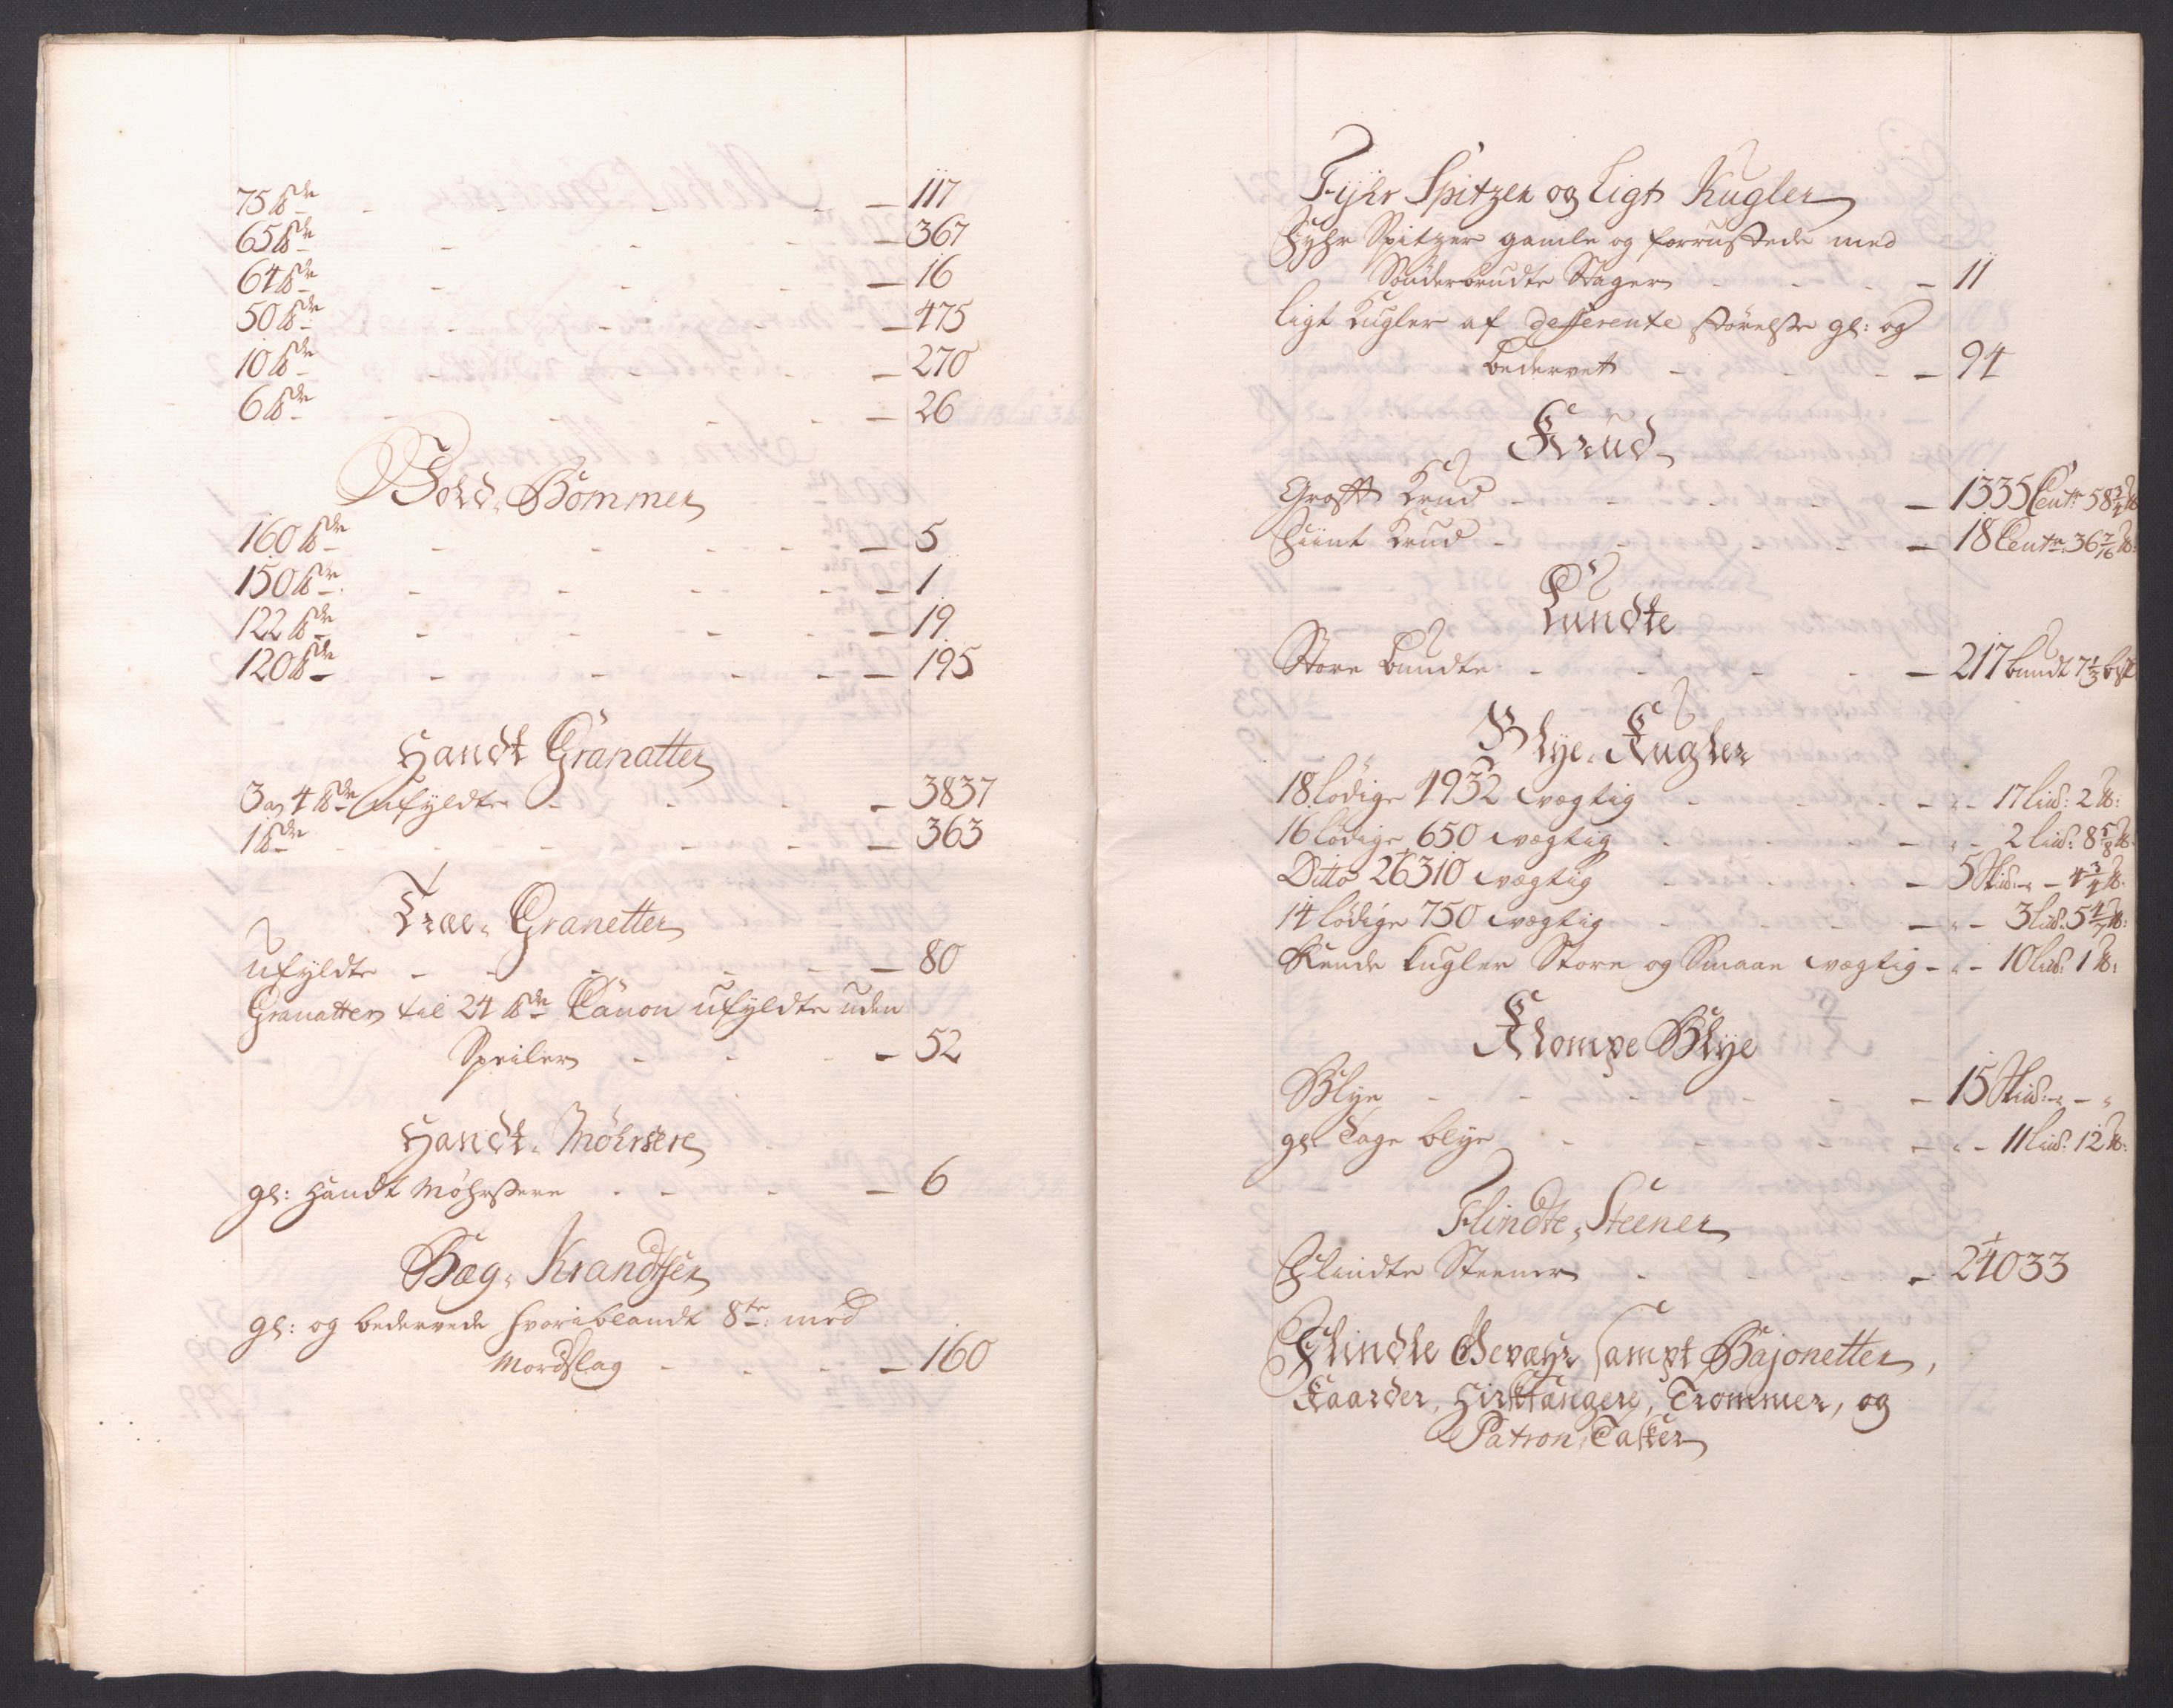 75 ℔de - - - - - 117
65 ℔de - - - - 367
64 ℔de - - - - 16
50 ℔de - - - - 475
10 ℔de - - - - 270
6 ℔de - - - - 26
Bold. Bommer
160 ℔de - - - - - 5
150 ℔de - - - - - 1
122 ℔de - - - - - 19
120 ℔de - - - - - 195
Handt Granatter
3 og 4 ℔de ufyldte - - - - 3837
1 ℔de - - - - - 363
Træe. Granetter
ufyldte - - - - - 80
Granatter til 24 ℔de Canon ufyldte uden
Speiler - - - - 52
Handt. Möhrsere
gl: Handt Möhrsere - - - - 6
Bæg. Krandtser
gl: og bedervede hvoriblandt 8te med
Mordslag - - - - 160
Fyhr Spitzer og Ligt Kugler
Fyhr Spitzer gamle og forrustede med
Sönderbrudte Stager - - - - 11
Ligt Kugler af defferente störelse gl: og
bedervet - - - - 94
Krud
Groft Krud - - - - 1335 Centr 58 3/4 ℔
Fiint Krud - - - - 18 Centr: 36 7/16 ℔:
Lundte
Store Bundter - - - - 217 bundt 7 1/2 bgt
Blye. Kugler
18 lodige 4932 vægtig - - - „ - 17 Lis: 2 ℔:
16 lodige 650 vægtig - - - „ - 2 Lis: 8 5/8 ℔:
Ditto 26310 vægtig - - - 5 Skis: „ - 4 3/4 ℔:
14 lödige 750 vægtig - - - „ - 3 Lis: 5 4/7 ℔:
Runde Kugler Store og Smaae vægtig - „ - 10 Lis: 1 ℔:
Klompe Blye
Blye - - - - - 15 Skis: „ - „
gl: Tage blye - - - - „ - 11 Lis: 12 ℔:
Flindte. Steener
Flindte Steener - - - - 24033
Flindte Gevæhr, sampt Bajonetter,
Kaarder, Hirschfangere, Trommer, og
Patron. Tasker